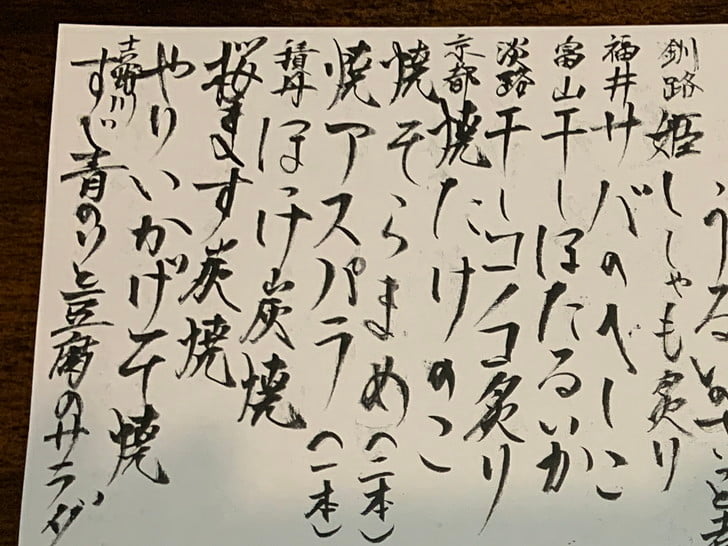 うるいの
釧路姫ししゃも炙り
福井サバのへしこ
富山干しほたるいか
淡路干しコノコ炙り
京都焼たけのこ
焼そらまめ（二本）
焼アスパラ（一本）
積丹ほっけ炭焼
桜ます炭焼
やりいかげ干焼
吉野川すじ青のりと豆腐のサラダ